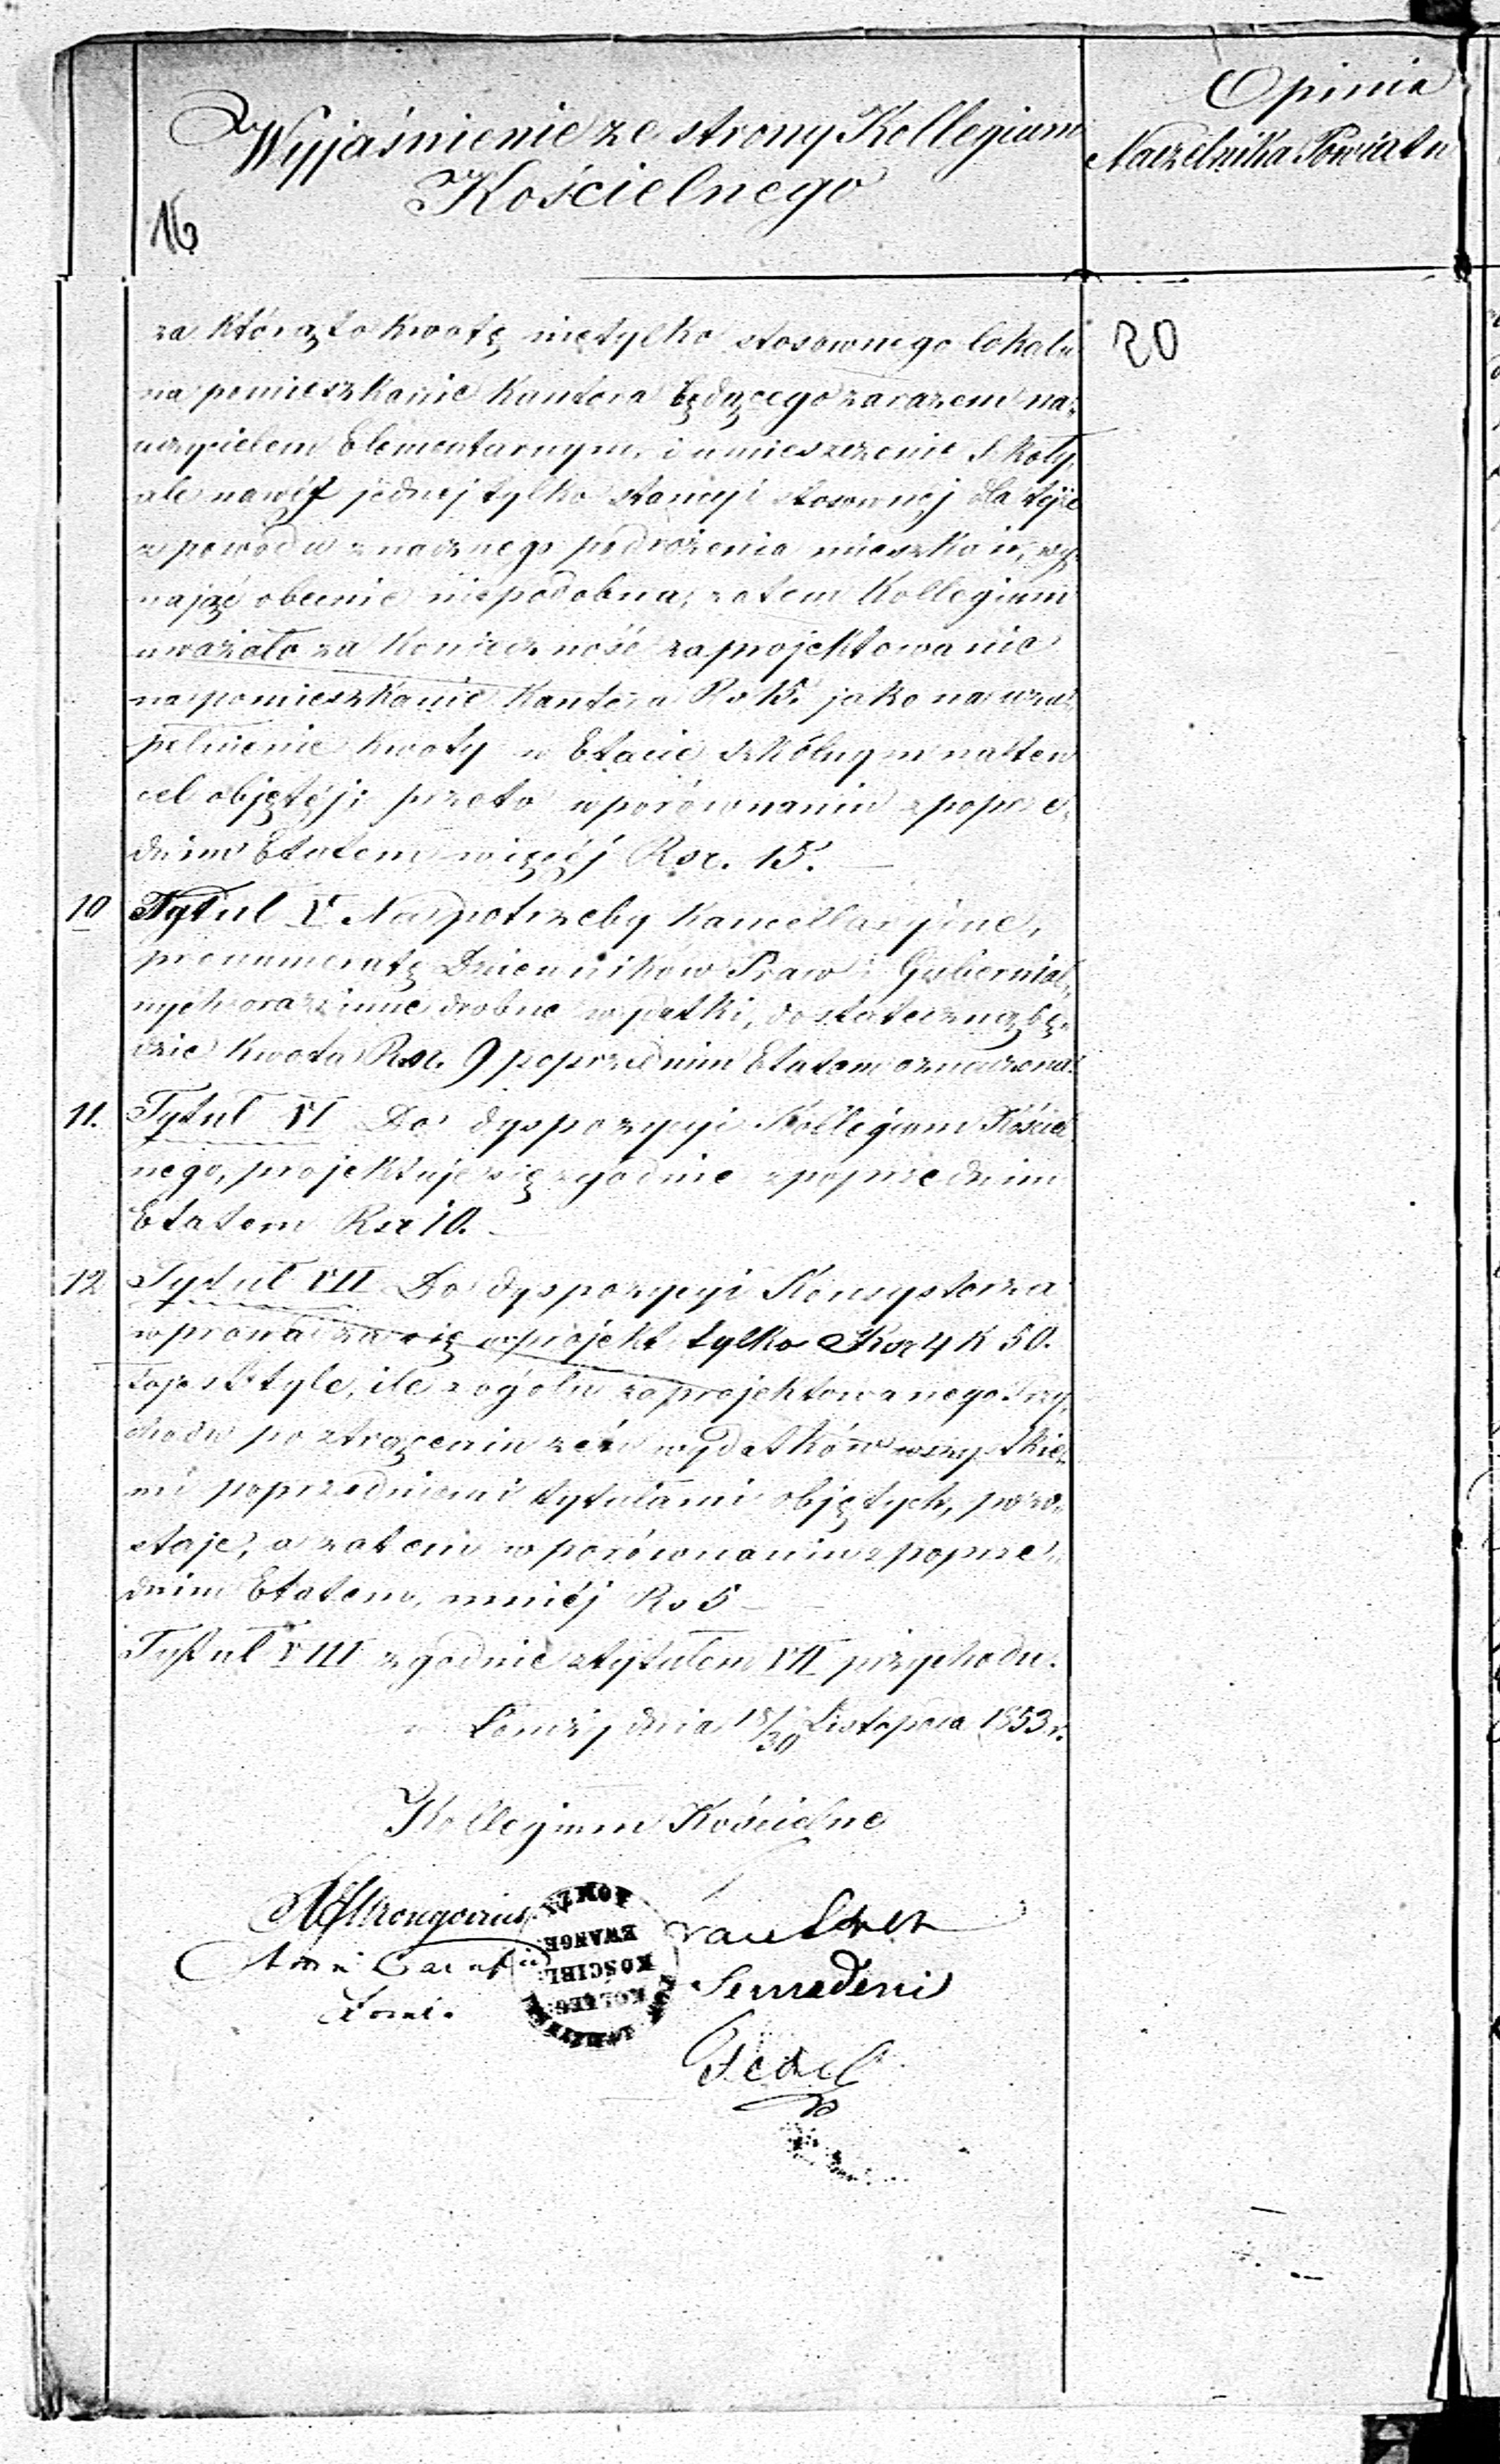 Opinia
Wyjaśnienie ze strony Kollegium
Naczelnika Powiatu
Kościelnego
16
za którą to kwotę nietylko stosownego lokalu
20
na pomieszkanie Kantora będącego zarazem na„
uczycielem Elementarnym i umieszczenie Szkoły
ale nawet jednej tylko stancyi stosownej dla tejże
z powodu znacznego podrożenia mieszkań, wy„
nająć obecnie niepodobna; zatem Kollegium
uważało za konieczność zaprojektowanie
na pomieszkanie Kantora Rs 15. jako na uzu„
pełnienie kwoty w Etacie szkólnym na ten
cel objętéj; przeto w porównaniu z poprze„
dnim Etatem więcéj Rsr. 15.
10 Tytuł V Na potrzeby Kancellaryjne,
prenumeratę Dzienników Praw i Gubernial„
nych oraz inne drobne wydatki, dostateczną bę„
dzie kwota Rsr. 9 poprzednim Etatem oznaczona.
11. Tytuł VI Do dyspozycyi Kollegium Kościel
nego, projektuje się zgodnie z poprzednim
Etatem Rsr 10.
12 Tytuł VII Do dyspozycyi Konsystorza
wprowadza się w projekt tylko Rsr 4 K 50.
to jest tyle, ile z ogółu zaprojektowanego przy„
chodu po strąceniu zeń wydatków wszystkie„
mi poprzedniemi tytułami objętych, pozo„
staje, a zatem w porównaniu z poprze„
dnim Etatem, mniéj Rs 5
Tytuł VIII zgodnie z tytułem VII przychodu.
w Łomży dnia 18/30 Listopada 1853 r.
Kollegium Kościelne
ŁOMŻA
EWANGE
KOSCIEL
KOLLEG
Semadeni